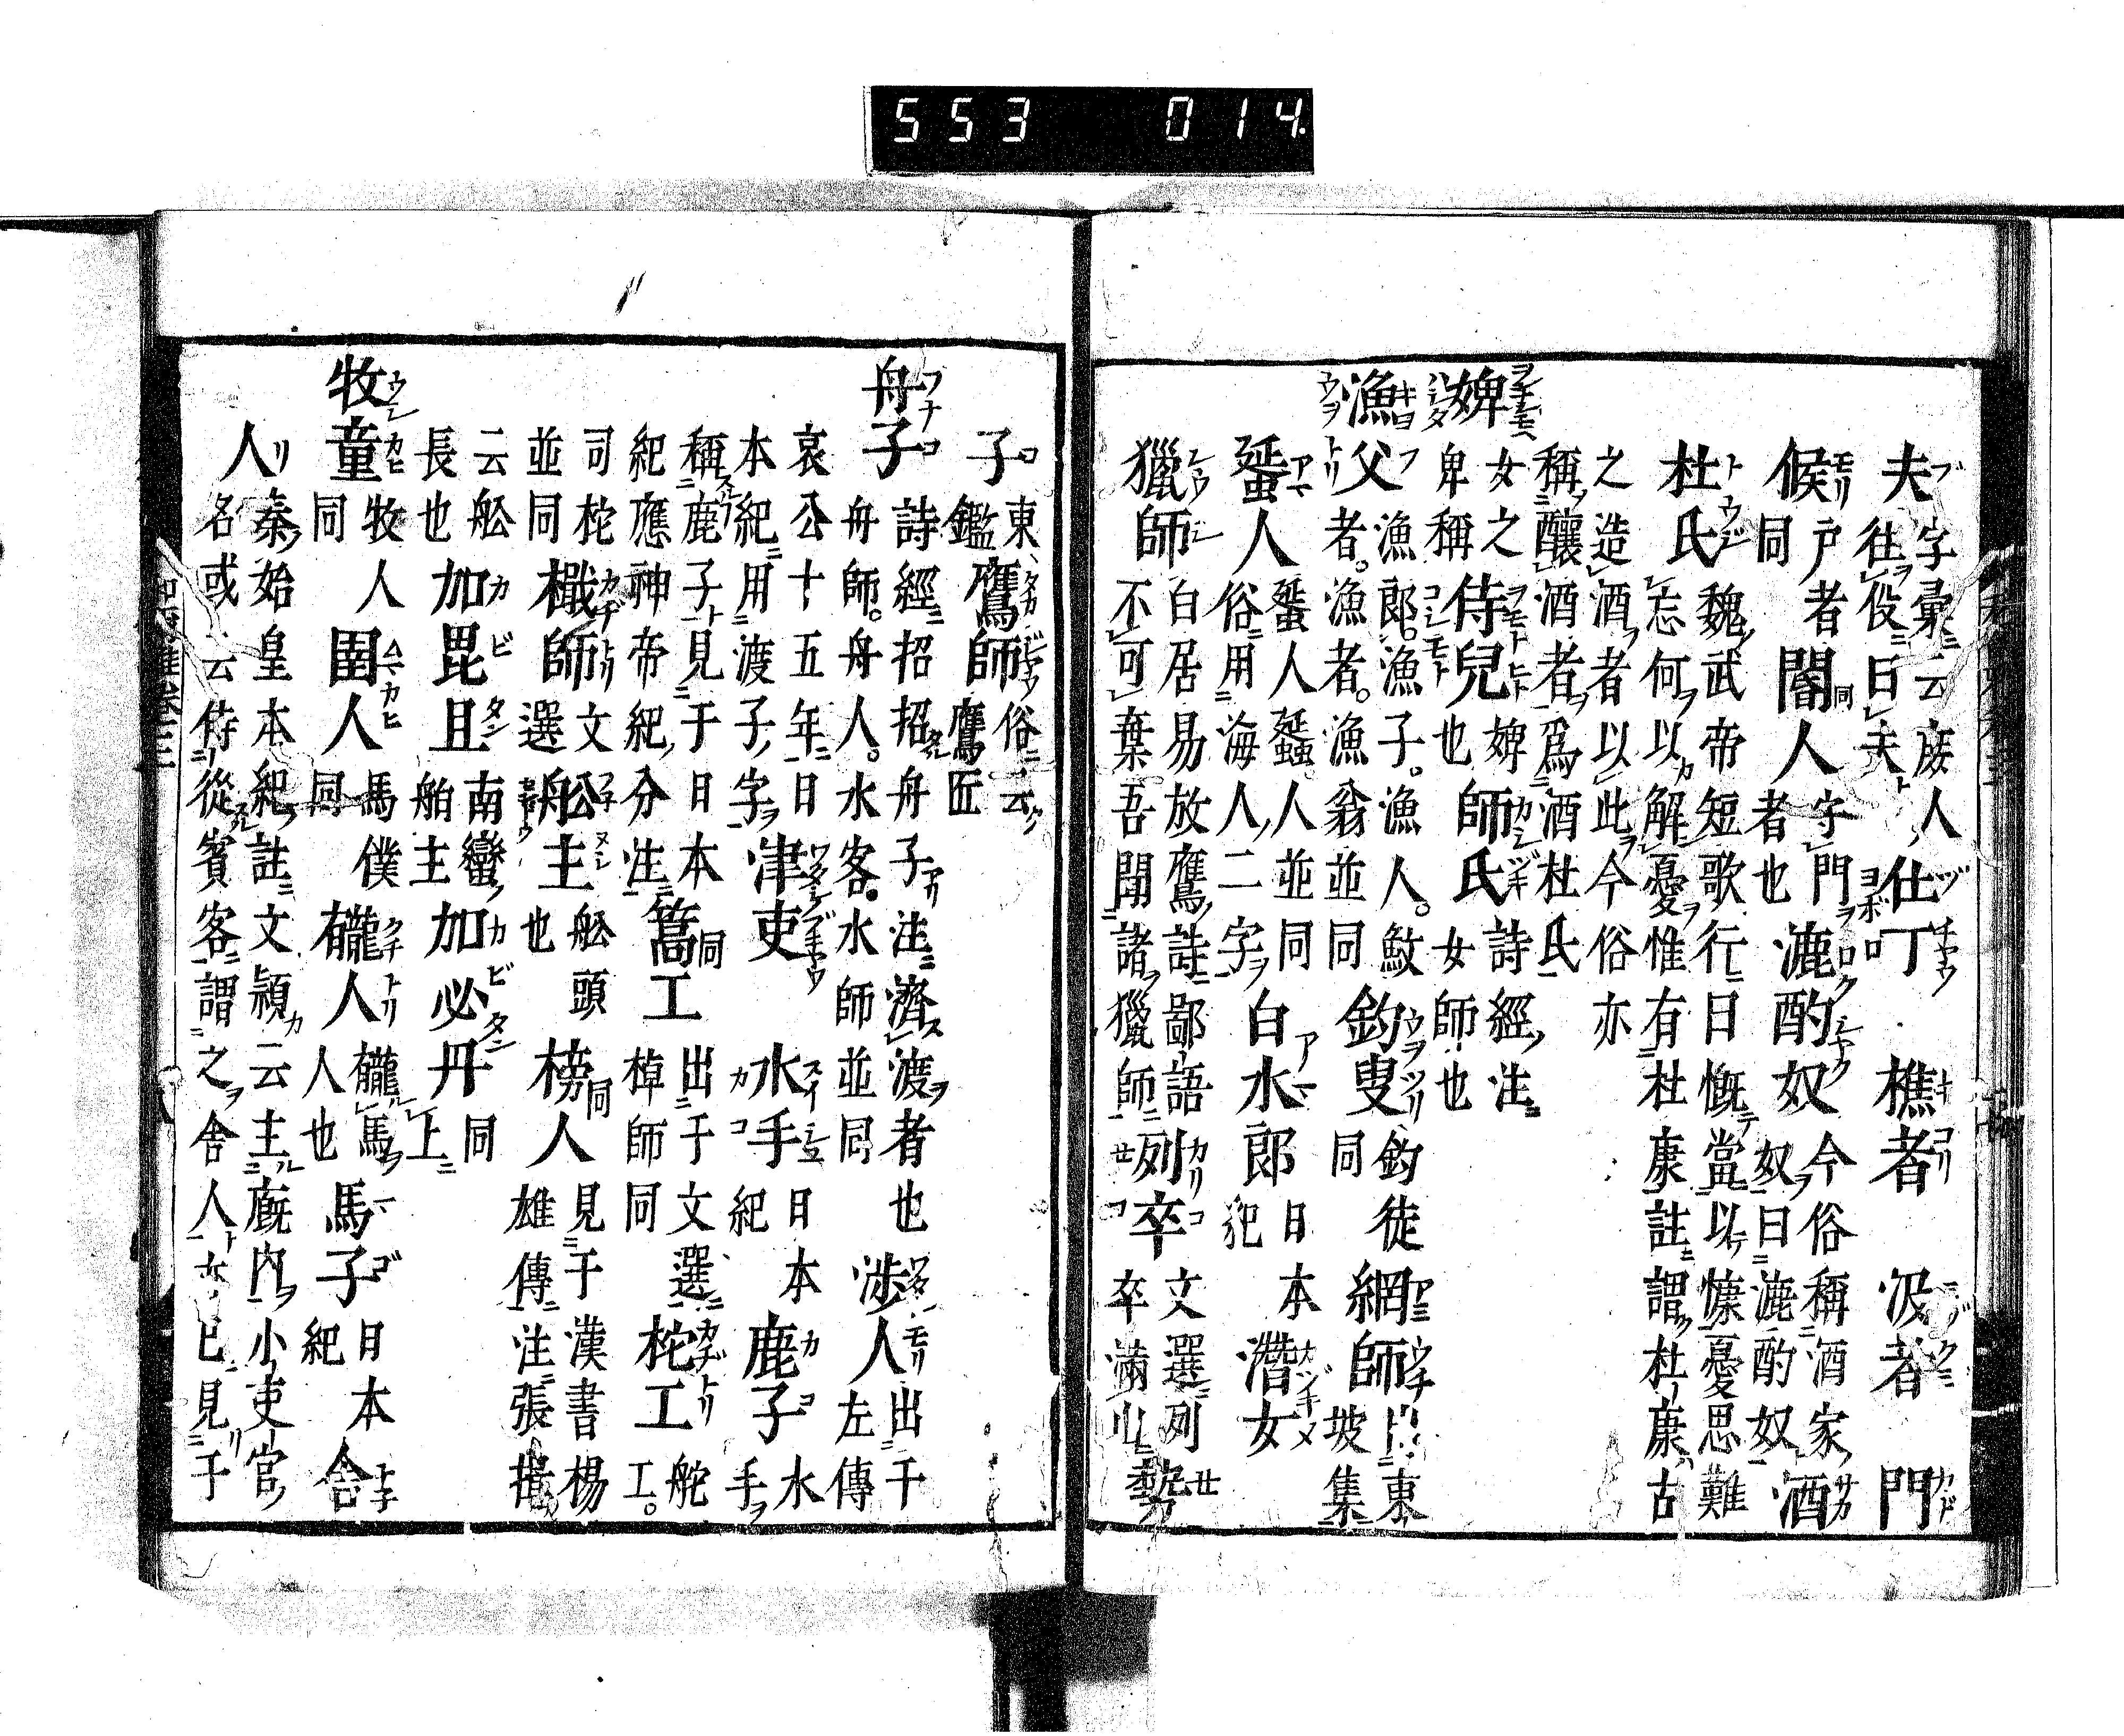 夫 字彙云族人往役曰夫 仕丁 樵者 汲者 門
候 戸者同 閽人 守門者也 漉酌奴 今俗稱酒家奴曰漉酌奴 酒
杜氏 魏武帝短歌行曰慨當以慷憂思難忘何以解憂惟有杜康註謂杜康古
之造酒者以此今俗亦稱釀酒者爲酒杜氏
婢 女之卑稱 侍兒 婢也 師氏 詩經注女師也
漁父 漁郎。漁子。漁人。者。漁者。漁翁並同 釣叟 釣徒同 網師 東坡集
蜑人 蜑人人並同俗用海人二字 白水郎 日本紀 潛女
獵師 白居易放鷹詩鄙語不可棄吾聞諸獵師 列卒 文選列卒滿山 勢
子 東鑑 鷹師 俗云鷹匠
舟子 詩經招招舟子注濟渡者也舟師。舟人。水客。水師並同 涉人 出于左傳
哀公十五年日本紀用渡子字 津吏 水手 日本紀 鹿子 水手
稱鹿子見于日本紀應神帝紀分注 篙工 出于文選棹師同 柁工 舵工。
司柁並同 檝師 文選 舩主 舩頭也 榜人 見于漢書楊雄傳注張揖
云舩長也 加毘且 南蠻舶主 加必丹 同上
牧童 牧人同 圉人 馬僕同 人 馬人也 馬子 日本紀 舍
人 秦始皇本紀註文穎云主廐内小吏官名或云侍從賓客謂之舍人 見于
553 014